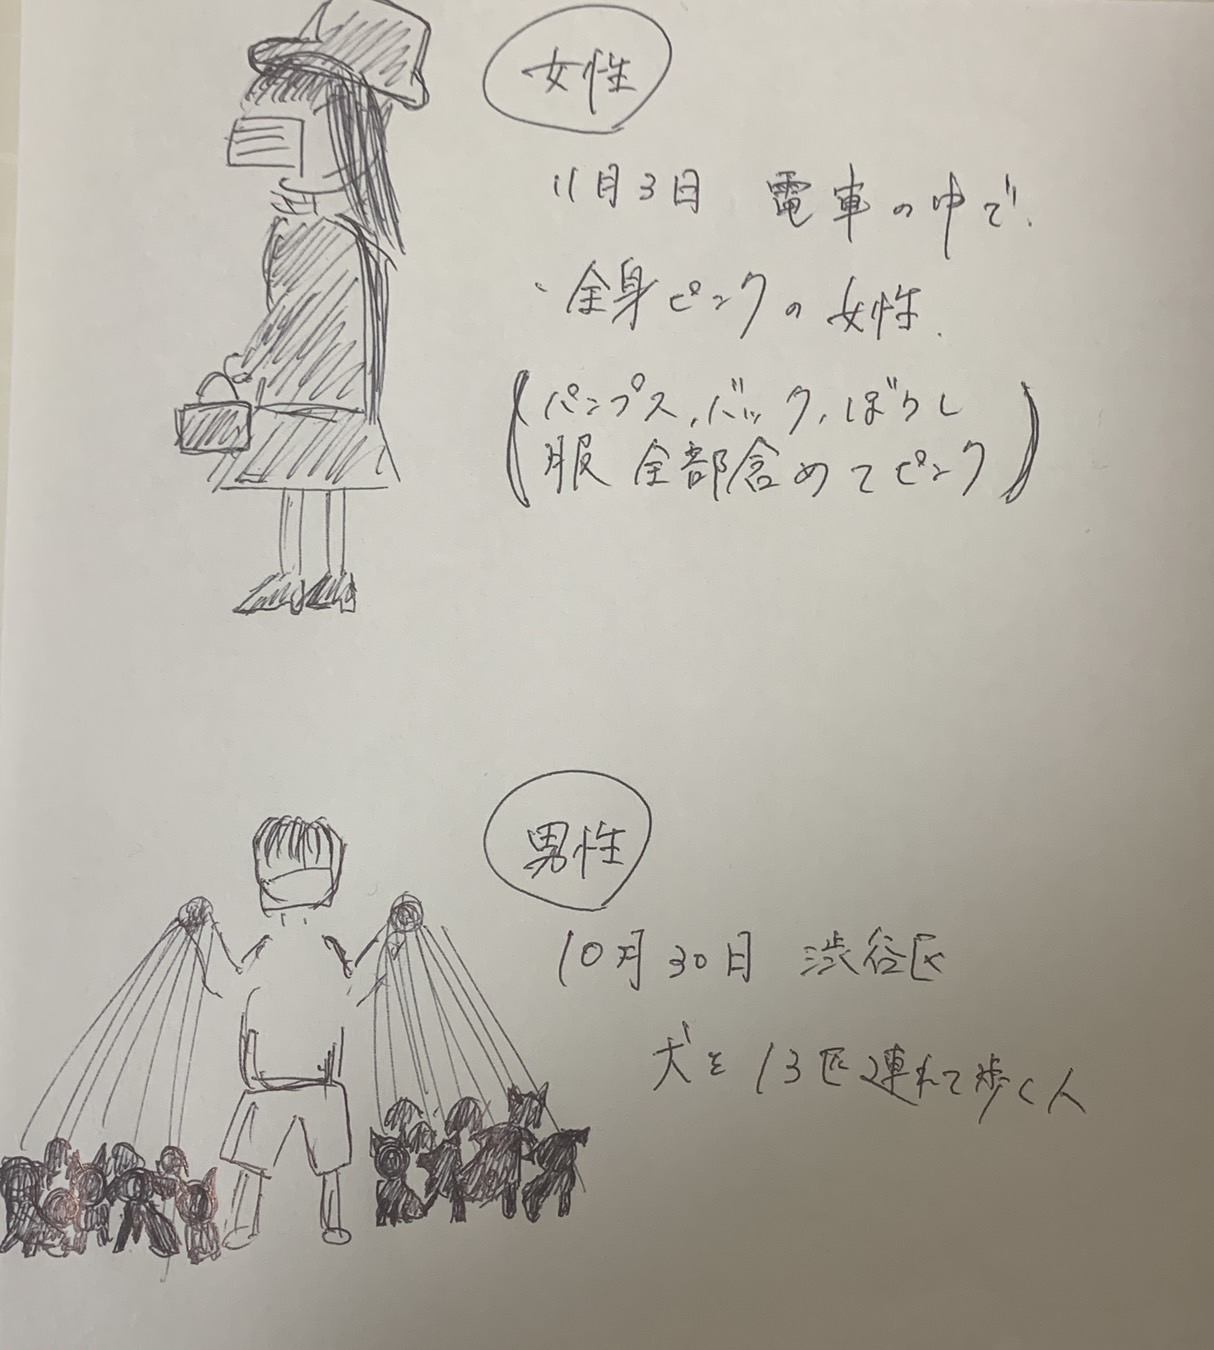 女性
11月3日 電車の中で.
・全身ピンクの女性.
(パンプス,バック,ぼうし
服 全部含めてピンク)
男性
10月30日 渋谷区
犬を13匹連れて歩く人